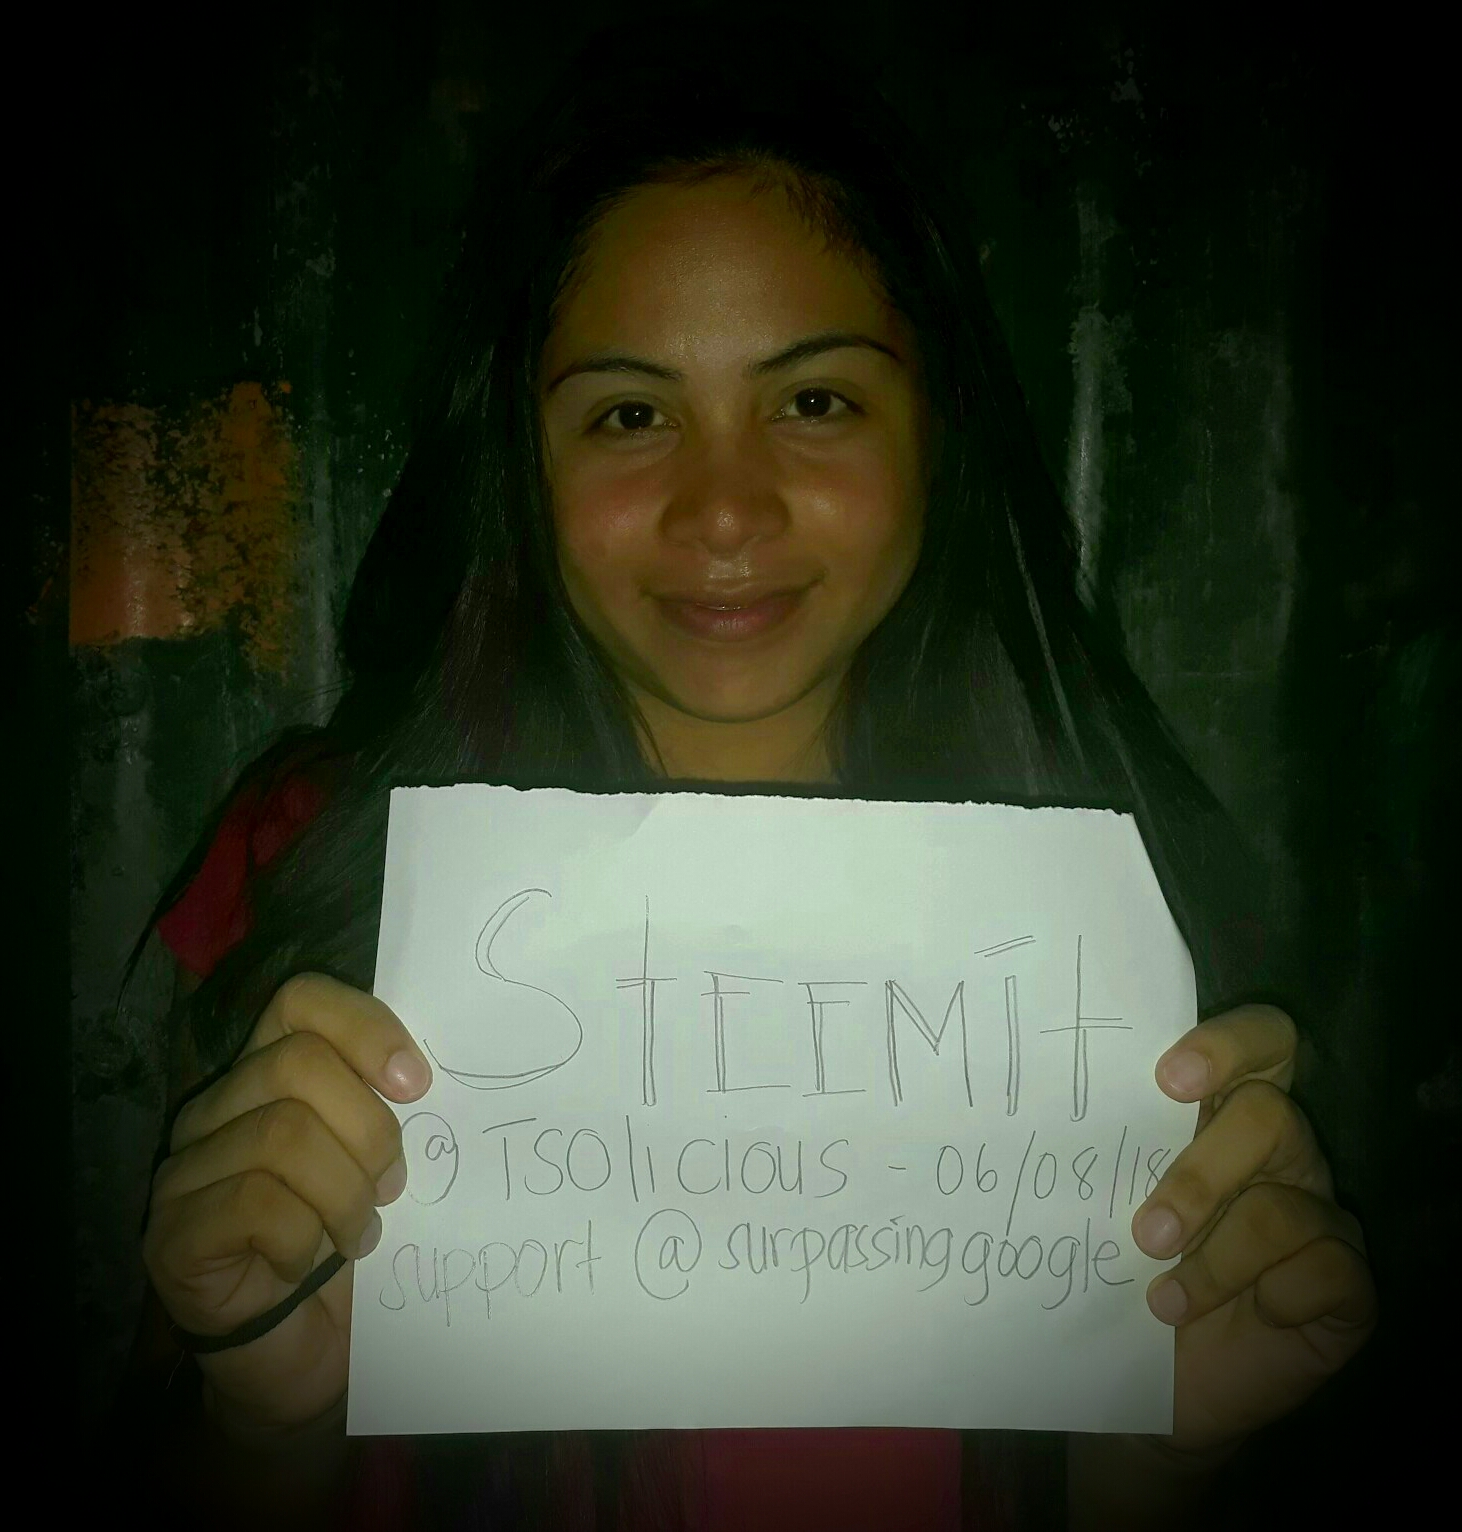 STEEMiT
@TSOlicious - 06/08/18
support @surpassinggoogle